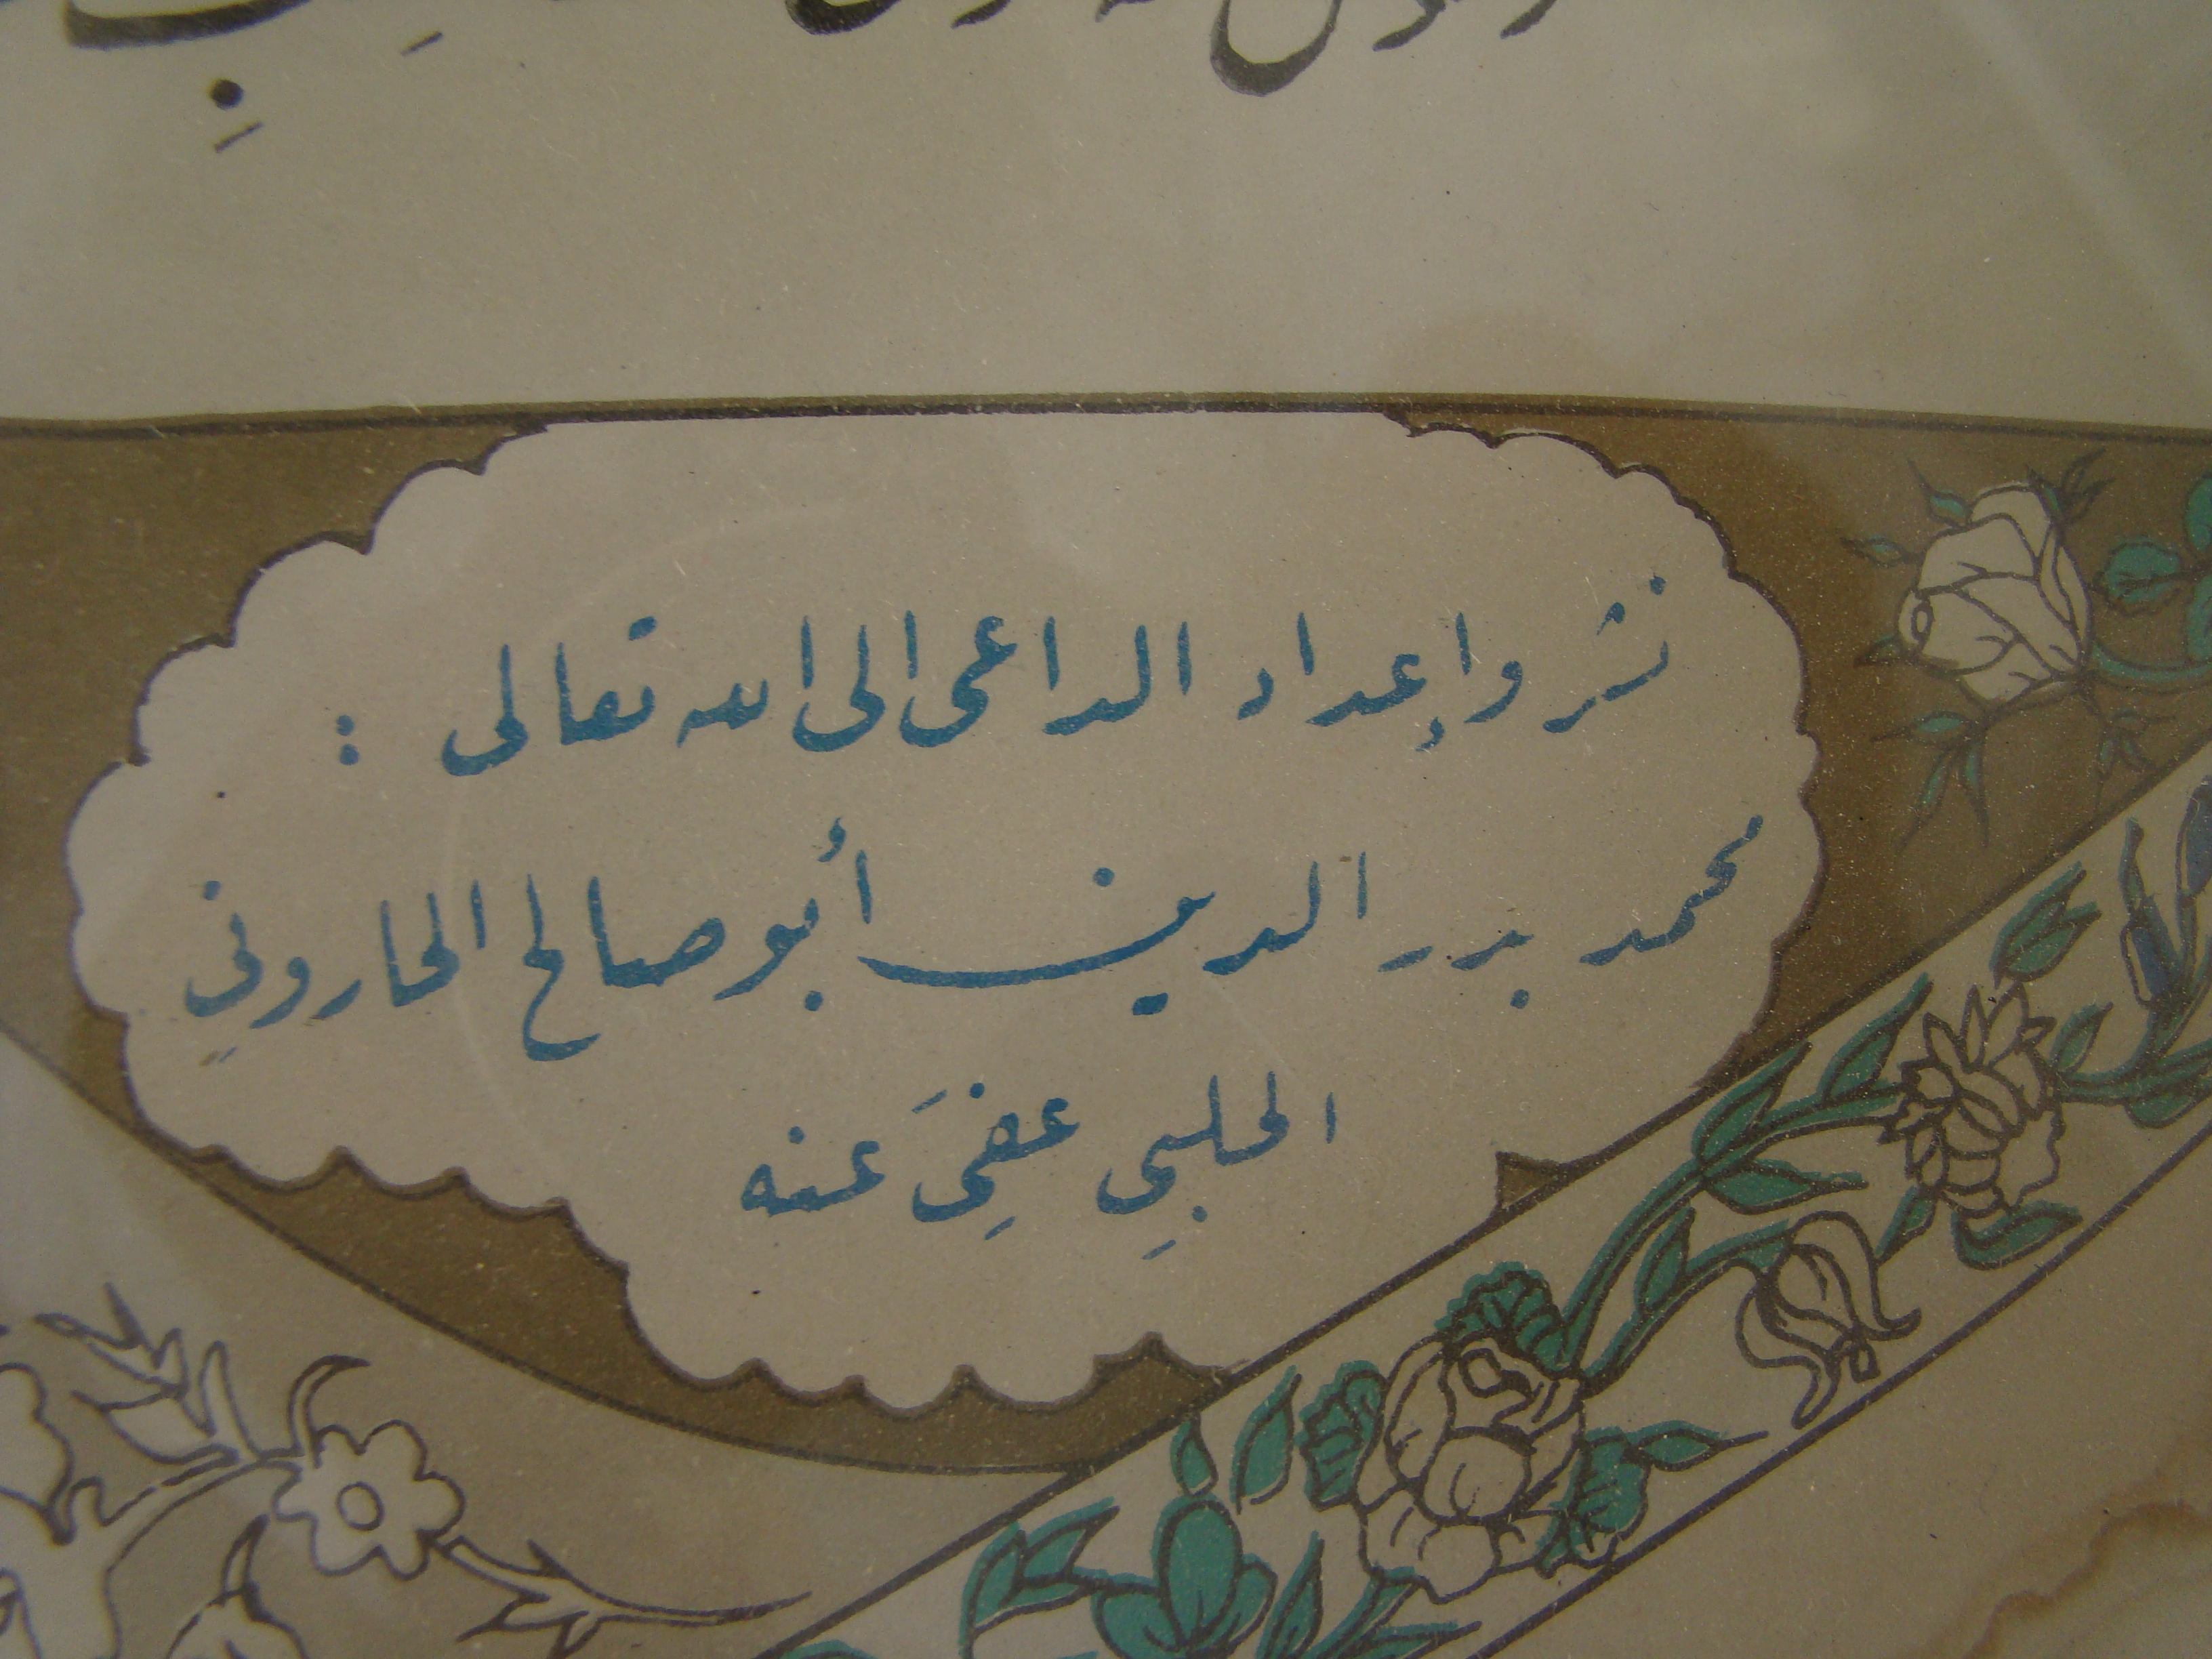 نشر وإعداد الداعى الى الله تعالى :
محمد بدر الدين أبو صالح الحارونِي
الحلبِي عفِيَ عنه